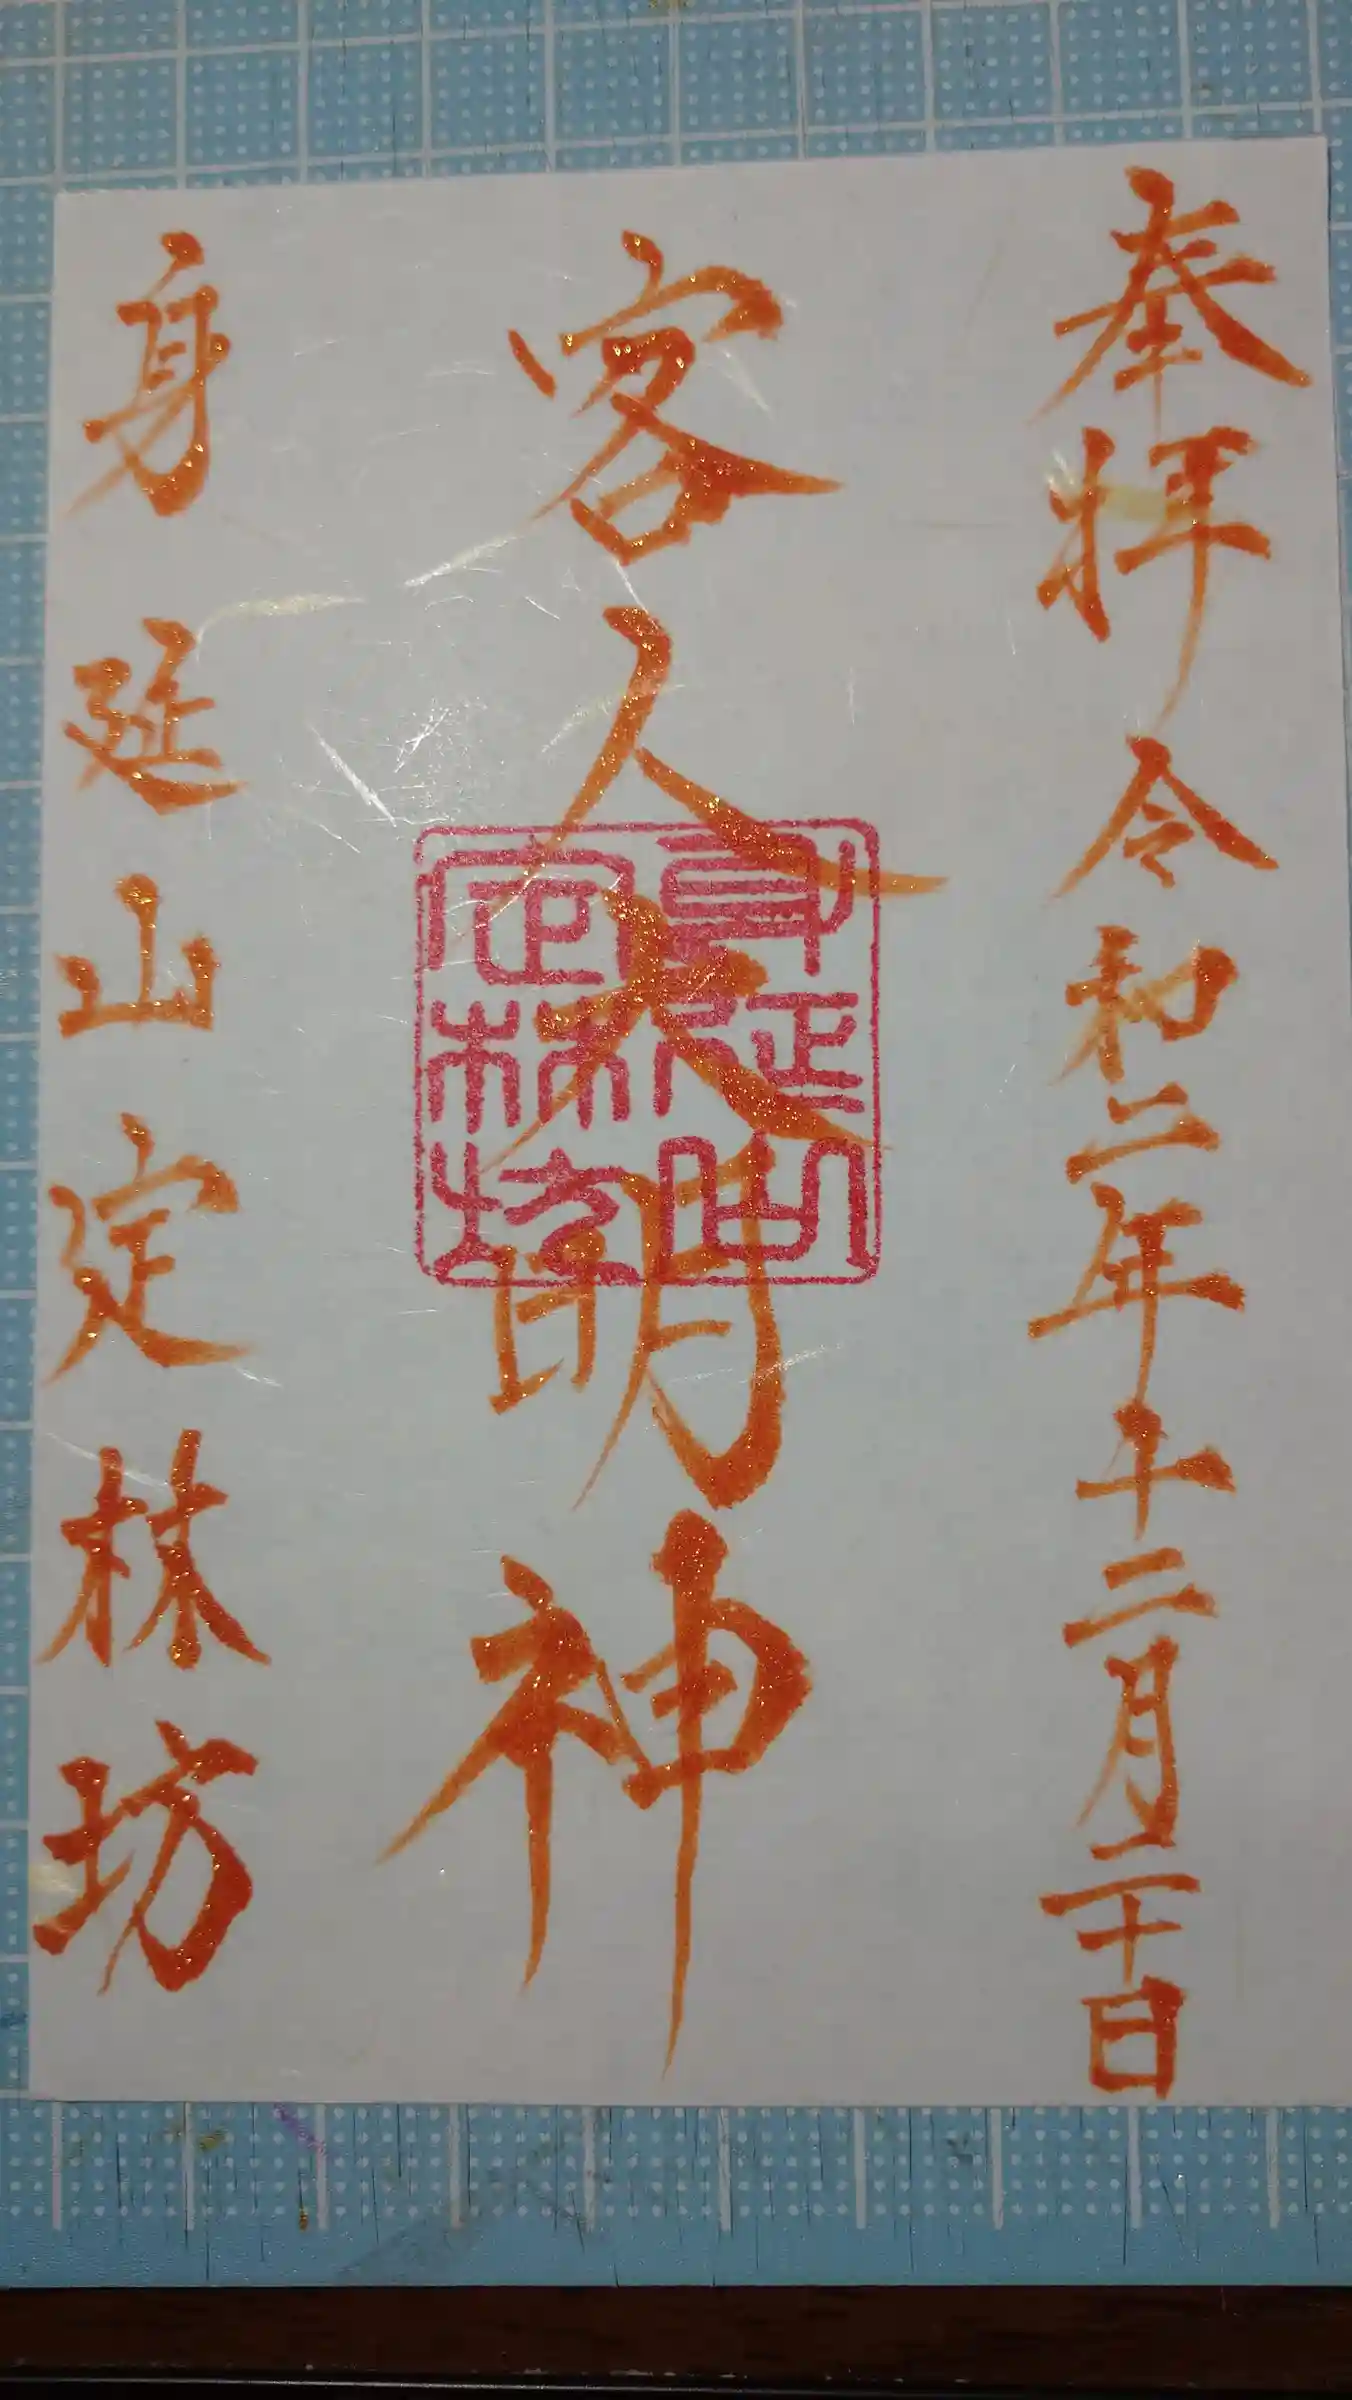 奉拝 令和二年十二月二十日
客人大明神
身延山
定林坊
身延山定林坊